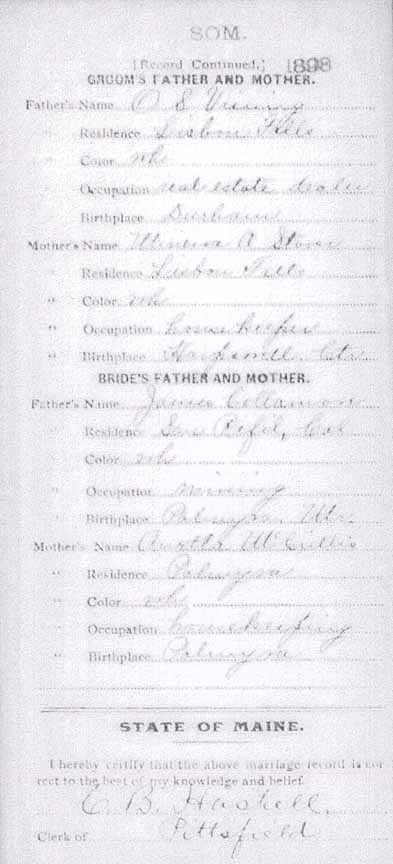 SOM.
[Record Continued.] 1898
GROOM'S FATHER AND MOTHER.
Father's Name O S Vining
" Residence Lisbon Falls
" Color wh
" Occupation real estate dealer
" Birthplace Durham
Mother's Name A Stover
" Residence Lisbon Falls
" Color wh
" Occupation housekeeper
" Birthplace Harpswell
BRIDE'S FATHER AND MOTHER.
Father's Name James
" Residence Cal
" Color wh
" Occupation mining
" Birthplace Palmyra
Mother's Name
" Residence Palmyra
" Color wh
" Occupation housekeeping
" Birthplace Palmyra
STATE OF MAINE.
I hereby certify that the above marriage record is cor
rect to the best of my knowledge and belief.
C. B. Haskell,
Clerk of Pittsfield